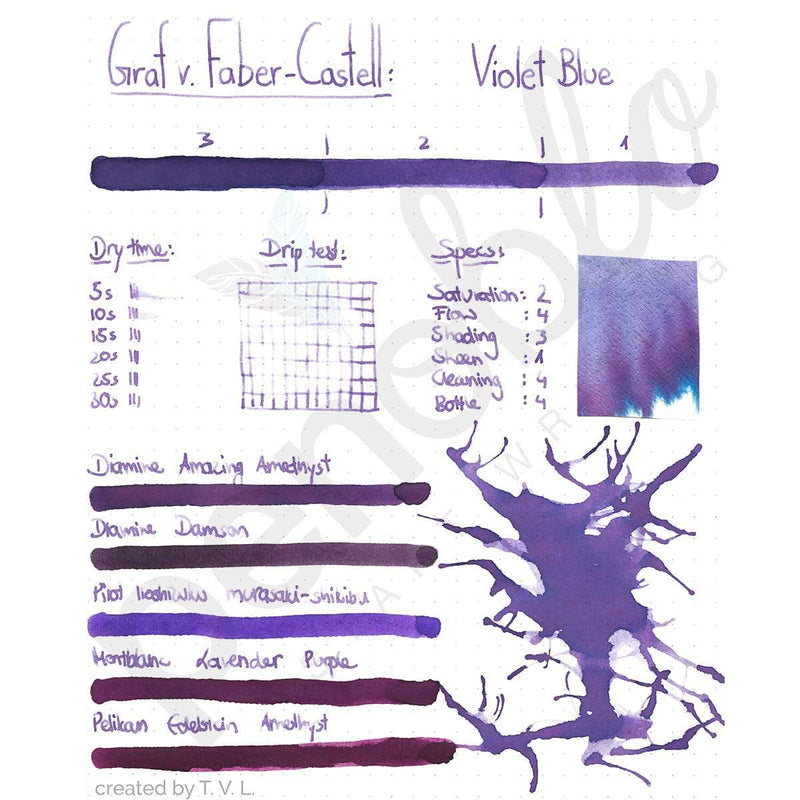 Graf v. Faber-Castell: Violet Blue
3 | 2 | 1
Dry time:
5s
10s
15s
20s
25s
30s
Drip test:
Specs:
Saturation: 2
Flow : 4
Shading : 3
Sheen : 1
Cleaning : 4
Bottle : 4
Diamine Amazing Amethyst
Diamine Damson
Pilot Iroshizuku murasaki-shikibu
Montblanc Lavender Purple
Pelikan Edelstein Amethyst
penoblo
created by T. V. L.